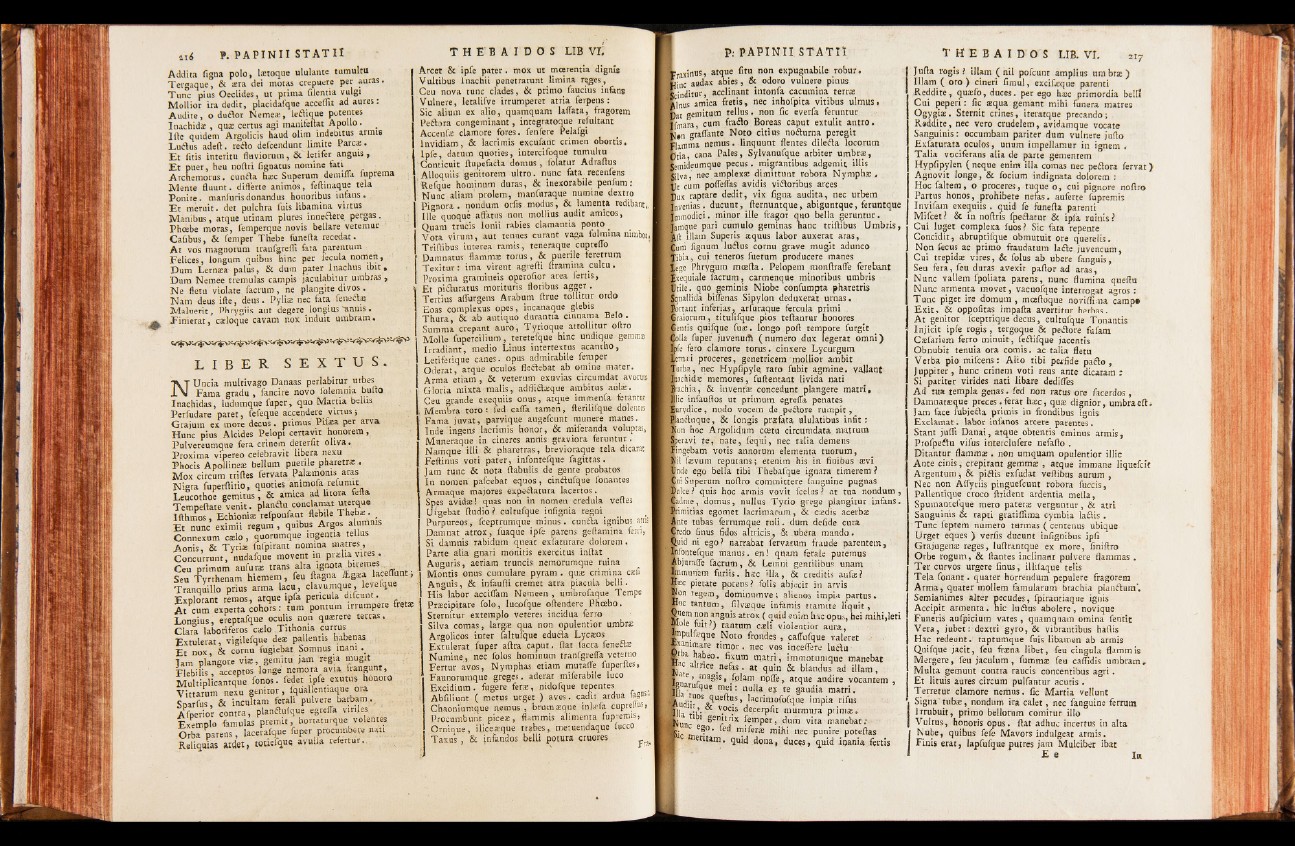 216 P. PAPINII STATII
Addita signa polo, lætoque ululante tumultu
Tergaque, & æra dei motas crepuere per auras.
Tunc pius Oeclides, ut prima silentia vulgi
Mollior ira dedit, placidasque accessit ad aures:
Audite, o ductor Nemeæ, lectique potentes
Inachidæ, quæ certus agi manifestat Apollo.
Iste quidem Argolicis haud olim indebitus armis
Luctus adest. recto descendunt limite Parcæ.
Et sitis interitu fluviorum, & letifer anguis,
Et puer, heu nostri signatus nomine fati
Archemorus. cuncta hæc Superum demissa suprema
Mente fluunt. differte animos, festinaque tela
Ponite. mansuris donandus honoribus infans.
Et meruit. det pulchra suis libamina virtus
Manibus, atque utinam plures innectere pergas
Phœbe moras, semperque novis bellare vetemur
Casibus, & semper Thebe funesta recedat.
At vos magnorum transgressi fata parentum
Felices, longum quibus hinc per secula nomen,
Dum Lernæa palus, & dum pater Inachus ibit,
Dum Nemee tremulas campis jaculabitur umbras,
Ne fletu violate sacrum, ne plangite divos.
Nam deus iste, deus. Pyliæ nec fata senectæ
Maluerit, Phrygiis aut degere longius annis.
Finierat, cæloque cavam nox induit umbram.
LIBER SEXTUS.
NUncia multivago Danaas perlabitur urbes
Fama gradu, sancire novo solemnia busto
Inachidas, ludumque super, quo Martia bellis
Persudare paret, seseque accendere virtus;
Grajum ex more decus. primus Pisæa per arva
Hunc pius Alcides Pelopi certavit honorem,
Pulvereumque fera crinem detersit oliva.
Proxima vipereo celebravit libera nexu
Phocis Apollineæ bellum puerile pharetræ.
Mox circum tristes servata Palæmonis aras
Nigra superstitio, quoties animosa resumit
Leucothoe gemitus, & amica ad litora festa
Tempestate venit. planctu conclamat uterque
Isthmos, Echioniæ responsant flebile Thebæ.
Et nunc eximii regum, quibus Argos alumnis
Connexum cælo, quorumque ingentia tellus
Aonis, & Tyriæ suspirant nomina matres,
Concurrunt, nudasque movent in prælia vires.
Ceu primum ausuræ trans alta ignota biremes
Seu Tyrrhenam hiemem, seu stagna Ægæa lacessunt;
Tranquillo prius arma lacu, clavumque, levesque
Explorant remos, atque ipsa pericula discunt.
At cum experta cohors: tum pontum irrumpere fretæ
Longius, ereptasque oculis non quærere terras.
Clara laboriferos cælo Tithonia currus
Extulerat, vigilesque deæ pallentis habenas
Et nox, & cornu fugiebat Somnus inani.
Jam plangore viæ, gemitu jam regia mugit
Flebilis, acceptos longe nemora avia frangunt,
Multiplicantque sonos. sedet ipse exutus honoro
Vittarum nexu genitor, squallentiaque ora
Sparsus, & incultam ferali pulvere barbam.
Asperior contra, planctusque egressa viriles
Exemplo famulas premit, hortaturque volentes
Orba parens, lacerasque super procumbere nati
Reliquias ardet, totiesque avulsa refertur.
THEBAIDOS LIB VI.
Arcet & ipse pater. mox ut mœrentia dignis
Vultibus Inachii penetrarunt limina reges,
Ceu nova tunc clades, & primo saucius infans
Vulnere, letalisve irrumperet atria serpens:
Sic alium ex alio, quamquam lassata, fragorem
Pectora congeminant, integratoque resultant
Accensæ clamore fores. sensere Pelasgi
Invidiam, & lacrimis excusant crimen obortis.
Ipse, datum quoties, intercisoque tumultu
Conticuit stupefacta domus, solatur Adrastus
Alloquiis genitorem ultro. nunc fata recensens
Resque hominum duras, & inexorabile pensum:
Nunc aliam prolem, mansuraque numine dextro
Pignora. nondum orsis modus, & lamenta redibant,
Ille quoque affatus non mollius audit amicos,
Quam trucis Ionii rabies clamantis ponto
Vota virum, aut tenues curant vaga fulmina nimbos.
Tristibus interea ramis, teneraque cupresso
Damnatus flammæ torus, & puerile feretrum
Texitur: ima virent agresti stramina cultu.
Proxima gramineis operosior area sertis,
Et picturatus morituris floribus agger.
Tertius assurgens Arabum strue tollitur ordo
Eoas complexus opes, incanaque glebis
Thura, & ab antiquo durantia cinnama Belo.
Summa crepant auro, Tyrioque attollitur ostro
Molle supercilium, teretesque hinc undique gemmæ
Irradiant, medio Linus intertextus acantho,
Letiferique canes. opus admirabile semper
Oderat, atque oculos flectebat ab omine mater.
Arma etiam, & veterum exuvias circumdat avorum
Gloria mixta malis, afflictæque ambitus aulæ.
Ceu grande exequiis onus, atque immensa ferantur
Membra toro: sed cassa tamen, sterilisque dolentes
Fama juvat, parvique augescunt munere manes.
Inde ingens lacrimis honor, & miseranda voluptas,
Muneraque in cineres annis graviora feruntur.
Namque illi & pharetras, brevioraque tela dicarat
Festinus voti pater, insontesque sagittas.
Jam tunc & nota stabulis de gente probatos
In nomen pascebat equos, cinctusque sonantes
Armaque majores expectatura lacertos.
Spes avidæ! quas non in nomen credula vestes
Urgebat studio? cultusque insignia regni
Purpureos, sceptrumque minus. cuncta ignibus atris
Damnat atrox, suaque ipse parens gestamina ferri,
Si damnis rabidum queat exsaturare dolorem.
Parte alia gnari monitis exercitus instat
Auguris, aetriam truncis nemorumque ruina
Montis onus cumulare pyram. quæ crimina cæsi
Anguis, & infausti cremet atra piacula belli.
His labor accissam Nemeen, umbrosaque Tempe
Præcipitare solo, lucosque ostendere Phœbo.
Sternitur extemplo veteres incidua ferro
Silva comas, largæ qua non opulentior umbræ
Argolicos inter saltusque educta Lycæos
Extulerat super astra caput. stat sacra senectæ
Numine, nec solos hominum transgressa veterno
Fertur avos, Nymphas etiam mutasse superstes,
Faunorumque greges. aderat miserabile luco
Excidium. fugere feræ, nidosque tepentes
Absiliunt (metus urget) aves. cadit ardua fagus:
Chaoniumque nemus, brumæque inlæsa cupressus,
Procumbunt piceæ, flammis alimenta supremis,
Ornique, iliceæque trabes, metuendaque succo
Taxus, & infandos belli potura cruores
Fra-
P: PAPINII STATII
Fraxinus, atque situ non expugnabile robur.
Hinc audax abies, & odoro vulnere pinus
Scinditur, acclinant intonsa cacumina terræ
Alnus amica fretis, nec inhospita vitibus ulmus.
Dat gemitum tellus. non sic eversa feruntur
Ismara, cum fracto Boreas caput extulit antro.
Non grassante Noto citius nocturna peregit
Flamma nemus. linquunt flentes dilecta locorum
Otia, cana Pales, Sylvanusque arbiter umbræ,
Semideumque pecus. migrantibus adgemit illis
Silva, nec amplexæ dimittunt robora Nymphæ.
Ut cum possessas avidis victoribus arces
Dux raptare dedit, vix signa audita, nec urbem
Invenias. ducunt, sternuntque, abiguntque, feruntque
Immodici. minor ille fragor quo bella geruntur.
Jamque pari cumulo geminas hanc tristibus Umbris,
Ast illam Superis æquus labor auxerat aras,
Cum signum luctus cornu grave mugit adunco
Tibia, cui teneros suetum producere manes
Lege Phrygum mœsta. Pelopem monstrasse ferebant
Exequiale sacrum, carmenque minoribus umbris
Utile. quo geminis Niobe consumpta pharetris
Squallida bissenas Sipylon deduxerat urnas.
Portant inferias, arsuraque fercula primi
Graiorum, titulisque pios testantur honores
Gentis quisque suæ. longo post tempore surgit
Colla super juvenum (numero dux legerat omni)
Ipse fero clamore torus. cinxere Lycurgum
Lernæi proceres, genetricem mollior ambit
Turba, nec Hypsipyle raro subit agmine. vallant
Inachidæ memores, sustentant livida nati
Brachia, & inventæ concedunt plangere matri.
Illic infaustos ut primum egressa penates
Eurydice, nudo vocem de pectore rumpit,
Planctuque, & longis præfata ululatibus infit:
Non hoc Argolidum cœtu circumdata matrum
Speravi te, nate, sequi, nec talia demens
Fingebam votis annorum elementa tuorum,
Nil sævum reputans; etenim his in finibus ævi
Unde ego bella tibi Thebasque ignara timerem?
Cui Superum nostro committere sanguine pugnas
Dulce? quis hoc armis vovit scelus? at tua nondum,
Cadme, domus, nullus Tyrio grege plangitur infans.
Primitias egomet lacrimarum, & cædis acerbæ
Ante tubas ferrumque tuli. dum deside cura
Credo sinus fidos altricis, & ubera mando.
Quid ni ego? narrabat servatum fraude parentem,
Insontesque manus. en! quam ferale putemus
Abjurasse sacrum, & Lemni gentilibus unam
Immunem furiis. hæc illa, & creditis ausæ?
Hæc pietate potens? solis abjecit in arvis
Non regem, dominumve: alienos impia partus.
Hoc tantum, silvæque infamis tramite liquit,
Quem non anguis atrox (quid enim hac opus, hei mihi, leti
Mole fuit?) tantum cæli violentior aura,
Impulsæque Noto frondes, cassusque valeret
Exanimare timor. nec vos incessere luctu
Orba habeo. fixum matri, immotumque manebat
Hac altrice nefas. at quin & blandus ad illam,
Nate, magis, solam nosse, atque audire vocantem,
Ignarusque mei: nulla ex te gaudia matri.
Illa tuos questus, lacrimososque impia risus
Audiit, & vocis decerpsit murmura primæ.
Illa tibi genitrix semper, dum vita manebat:
Nunc ego. sed miseræ mihi nec punire potestas
Sic meritam. quid dona, duces, quid inania fertis
THEBAIDOS LIB. VI. 217
Justa rogis? illam (nil poscunt amplius umbræ)
Illam (oro) cineri simul, excisæque parenti
Reddite, quæso, duces. per ego hæc primordia belli
Cui peperi: sic æqua gemant mihi funera matres
Ogygiæ. Sternit crines, iteratque precando;
Reddite, nec vero crudelem, avidamque vocate
Sanguinis: occumbam pariter dum vulnere justo
Exsaturata oculos, unum impellamur in ignem.
Talia vociferans alia de parte gementem
Hypsipylen (neque enim illa comas nec pectora servat)
Agnovit longe, & socium indignata dolorem:
Hoc saltem, o proceres, tuque o, cui pignore nostro
Partus honos, prohibete nefas. auferte supremis
Invisam exequiis. quid se funesta parenti
Miscet? & in nostris spectatur & ipsa ruinis?
Cui luget complexa suos? Sic fata repente
Concidit, abruptisque obmutuit ore querelis.
Non secus ac primo fraudatum lacte juvencum,
Cui trepidæ vires, & solus ab ubere sanguis,
Seu fera, seu duras avexit pastor ad aras,
Nunc vallem spoliata parens, nunc flumina questu
Nunc armenta movet, vacuosque interrogat agros:
Tunc piget ire domum, mœstoque novissima campo
Exit. & oppositas impasta avertitur herbas.
At genitor sceptrique decus, cultusque Tonantis
Injicit ipse rogis, tergoque & pectore fusam
Cæsariem ferro minuit, sectisque jacentis
Obnubit tenuia ora comis. ac talia fletu
Verba pio miscens: Alio tibi perfide pacto,
Juppiter, hunc crinem voti reus ante dicaram:
Si pariter virides nati libare dedisses
Ad tua templa genas. sed non ratus ore sacerdos,
Damnatæque preces. ferat hæc, quæ dignior, umbra est.
Jam face subjecta primis in frondibus ignis
Exclamat. labor insanos arcere parentes.
Stant jussi Danai, atque obtentis eminus armis,
Prospectu visus interclusere nefasto.
Ditantur flammæ. non umquam opulentior illic
Ante cinis, crepitant gemmæ, atque immane liquescit
Argentum, & pictis exsudat vestibus aurum,
Nec non Assyriis pinguescunt robora succis,
Pallentique croco strident ardentia mella,
Spumantesque mero pateræ verguntur, & atri
Sanguinis & rapti gratissima cymbia lactis.
Tunc septem numero turmas (centenus ubique
Urget eques) versis ducunt insignibus ipsi
Grajugenæ reges, lustrantque ex more, sinistro
Orbe rogum, & stantes inclinant pulvere flammas.
Ter curvos urgere sinus, illisaque telis
Tela sonant. quater horrendum pepulere fragorem
Arma, quater mollem famularum brachia planctum.
Semianimes alter pecudes, spirantiaque ignis
Accipit armenta. hic luctus abolere, novique
Funeris auspicium vates, quamquam omina sentit
Vera, jubet: dextri gyro, & vibrantibus hastis
Hac redeunt. raptumque suis libamen ab armis
Quisque jacit, seu fræna libet, seu cingula flammis
Mergere, seu jaculum, summæ seu cassidis umbram.
Multa gemunt contra raucis concentibus agri.
Et lituis aures circum pulsantur acutis.
Terretur clamore nemus. sic Martia vellunt
Signa tubæ, nondum ira calet, nec sanguine ferrum
Irrubuit, primo bellorum comitur illo
Vultus, honoris opus. stat adhuc incertus in alta
Nube, quibus sese Mavors indulgeat armis.
Finis erat, lapsusque putres jam Mulciber ibat
E e
In